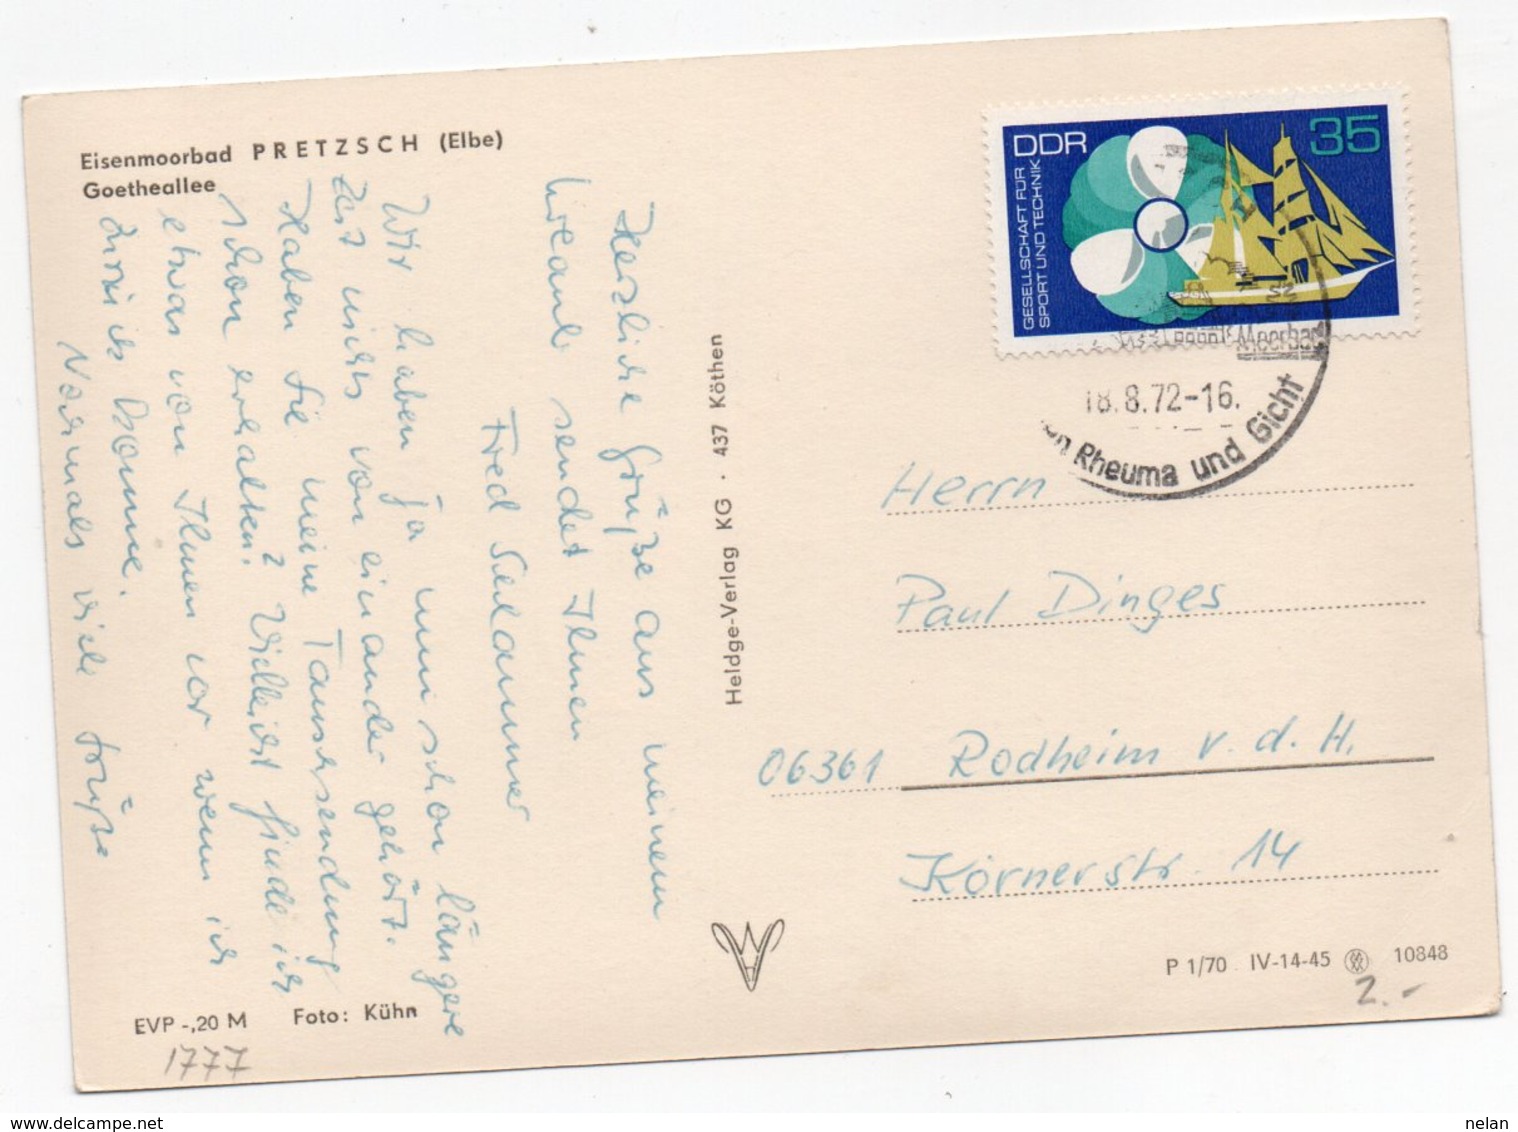 Eisenmoorbad PRETZSCH (Elbe)
Goetheallee
Herzliche Grüße aus meinem
Urlaub sendet Ihnen
Fred
Wir haben ja nun schon längere
Zeit nichts von einander gehört.
Haben Sie meine Tauschsendung
schon erhalten? Vielleicht finde ich
etwas von Ihnen vor wenn ich
zurück komme.
Nochmals viele Grüße
EVP -,20 M
Foto: Kühn
1777
Heldge-Verlag KG · 437 Köthen
DDR
35
GESELLSCHAFT FÜR
SPORT UND TECHNIK
Moorbad
18.8.72-16.
Rheuma und Gicht
Herrn
Paul Dinges
06361 Rodheim v. d. H.
Körnerstr. 14
P 1/70 IV-14-45 10848
2.-
www.delcampe.net
nelan